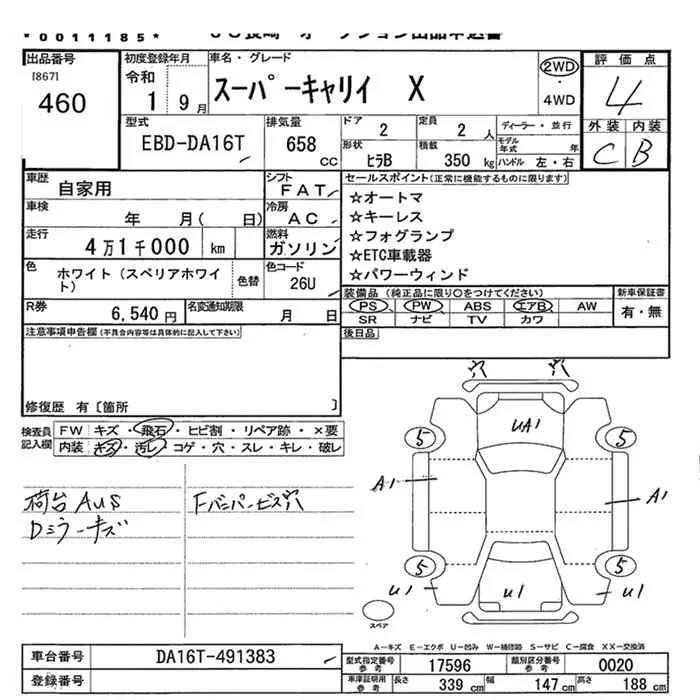 *0011185*
出品番号
[867]
460
初度登録年月
令和
1 9月
車名・グレード
スーパーキャリイ X
2WD
・
4WD
評価点
4
型式
EBD-DA16T
排気量
658
cc
ドア 2
定員 2 人
ディーラー・並行
モデル年式 年
形状 ヒラB
積載 350 kg
ハンドル 左・右
外装 内装
C B
車歴
自家用
シフト
FAT
セールスポイント(正常に機能するものに限ります)
車検
年 月( 日)
冷房
AC
☆オートマ
☆キーレス
☆フォグランプ
☆ETC車載器
☆パワーウィンド
走行
4万1千000 km
燃料
ガソリン
色
ホワイト(スペリアホワイト)
色替
色コード
26U
装備品(純正品に限り○をつけてください)
新車保証書
PS PW ABS エアB AW
有・無
SR ナビ TV カワ
R券
6,540円
名変通知期限
月 日
後日品
注意事項申告欄(不具合内容等は具体的に記入して下さい)
修復歴 有〔箇所 〕
検査員記入欄
FW キズ・飛石・ヒビ割・リペア跡・×要
内装 キズ・汚レ・コゲ・穴・スレ・キレ・破レ
荷台AUS
Fバンパービス穴
Dミラーキズ
穴 穴
UA1
5 5
A1 A1
5 5
U1 U1 1
スペア
A-キズ E-エクボ U-凹み W-補修跡 S-サビ C-腐食 XX-交換済
車台番号
DA16T-491383
登録番号
型式指定番号参考 17596
類別区分番号参考 0020
車庫証明用参考
長さ 339 cm
幅 147 cm
高さ 188 cm